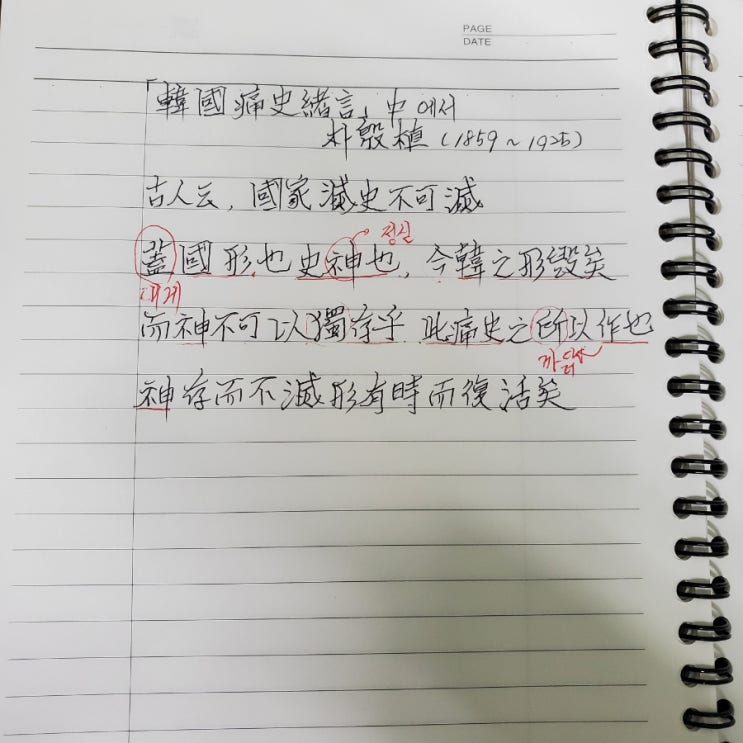 PAGE
DATE
「韓國痛史緖言」中에서
朴殷植 (1859~1925)
古人云, 國家滅史不可滅
정신
蓋國形也史神也, 今韓之形毁矣
대개
而神不可以獨存乎 此痛史之所以作也
까닭
神存而不滅形有時而復活矣